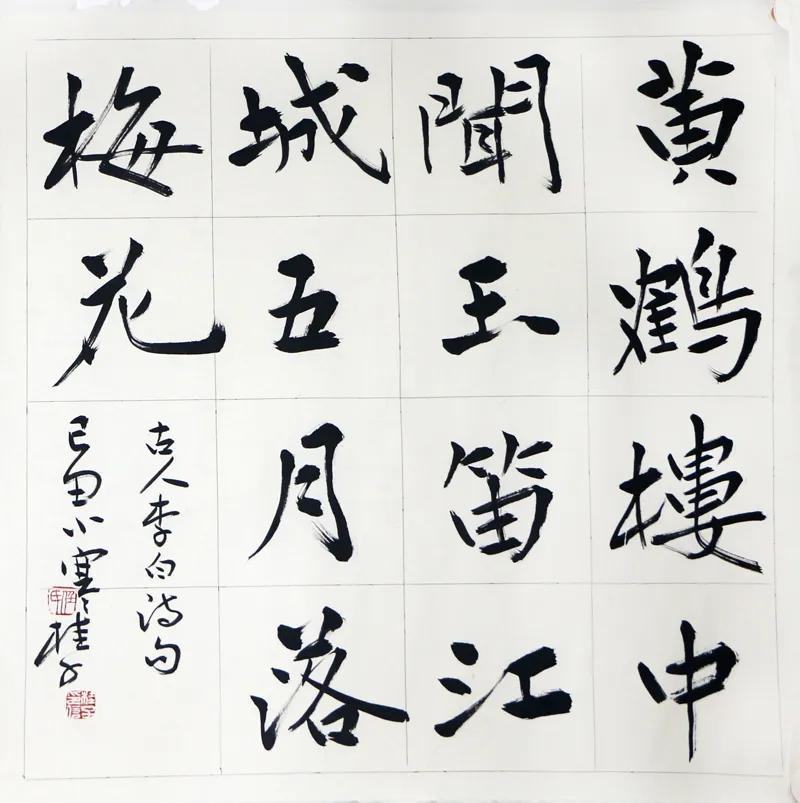 黄鶴樓中
聞玉笛江
城五月落
梅花
古人李白诗句
己丑小寒桂子